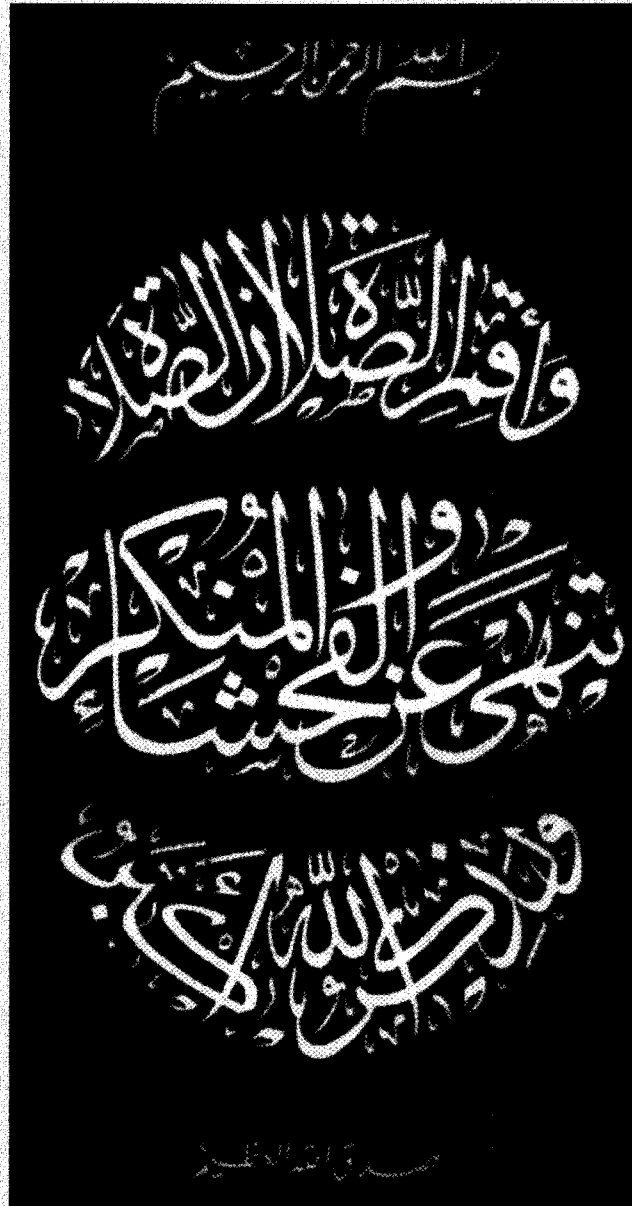 بسم الله الرحمن الرحيم
وَأَقِمِ الصَّلَاةَ إِنَّ الصَّلَاةَ
تَنْهَىٰ عَنِ الْفَحْشَاءِ وَالْمُنْكَرِ
وَلَذِكْرُ اللَّهِ أَكْبَرُ
صدق الله العظيم